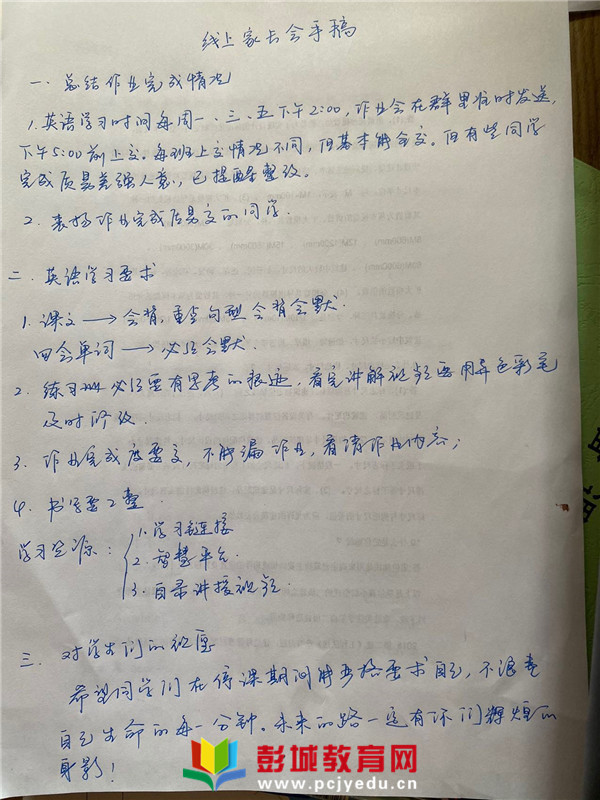 线上家长会手稿
一、总结作业完成情况
1.英语学习时间每周一、三、五下午2:00,作业会在群里准时发送,
下午5:00前上交。每班上交情况不同,但基本能全交。但有些同学
完成质量差强人意,已提醒整改。
2. 表扬作业完成质量高的同学.
二、英语学习要求
1. 课文 → 会背,重点句型 会背会默.
四会单词 → 必须会默.
2. 练习册必须要有思考的痕迹,看完讲解视频要用异色彩笔
及时修改.
3. 作业完成度要高,不能漏作业,看清作业内容;
4. 书写要工整.
学习资源:
1. 学习链接
2. 智慧平台
3. 自录讲授视频.
三. 对学生们的祝愿
希望同学们在停课期间能严格要求自己,不浪费
自己生命的每一分钟。未来的路一定有你们辉煌的
身影!
彭城教育网
www.pcjyedu.cn